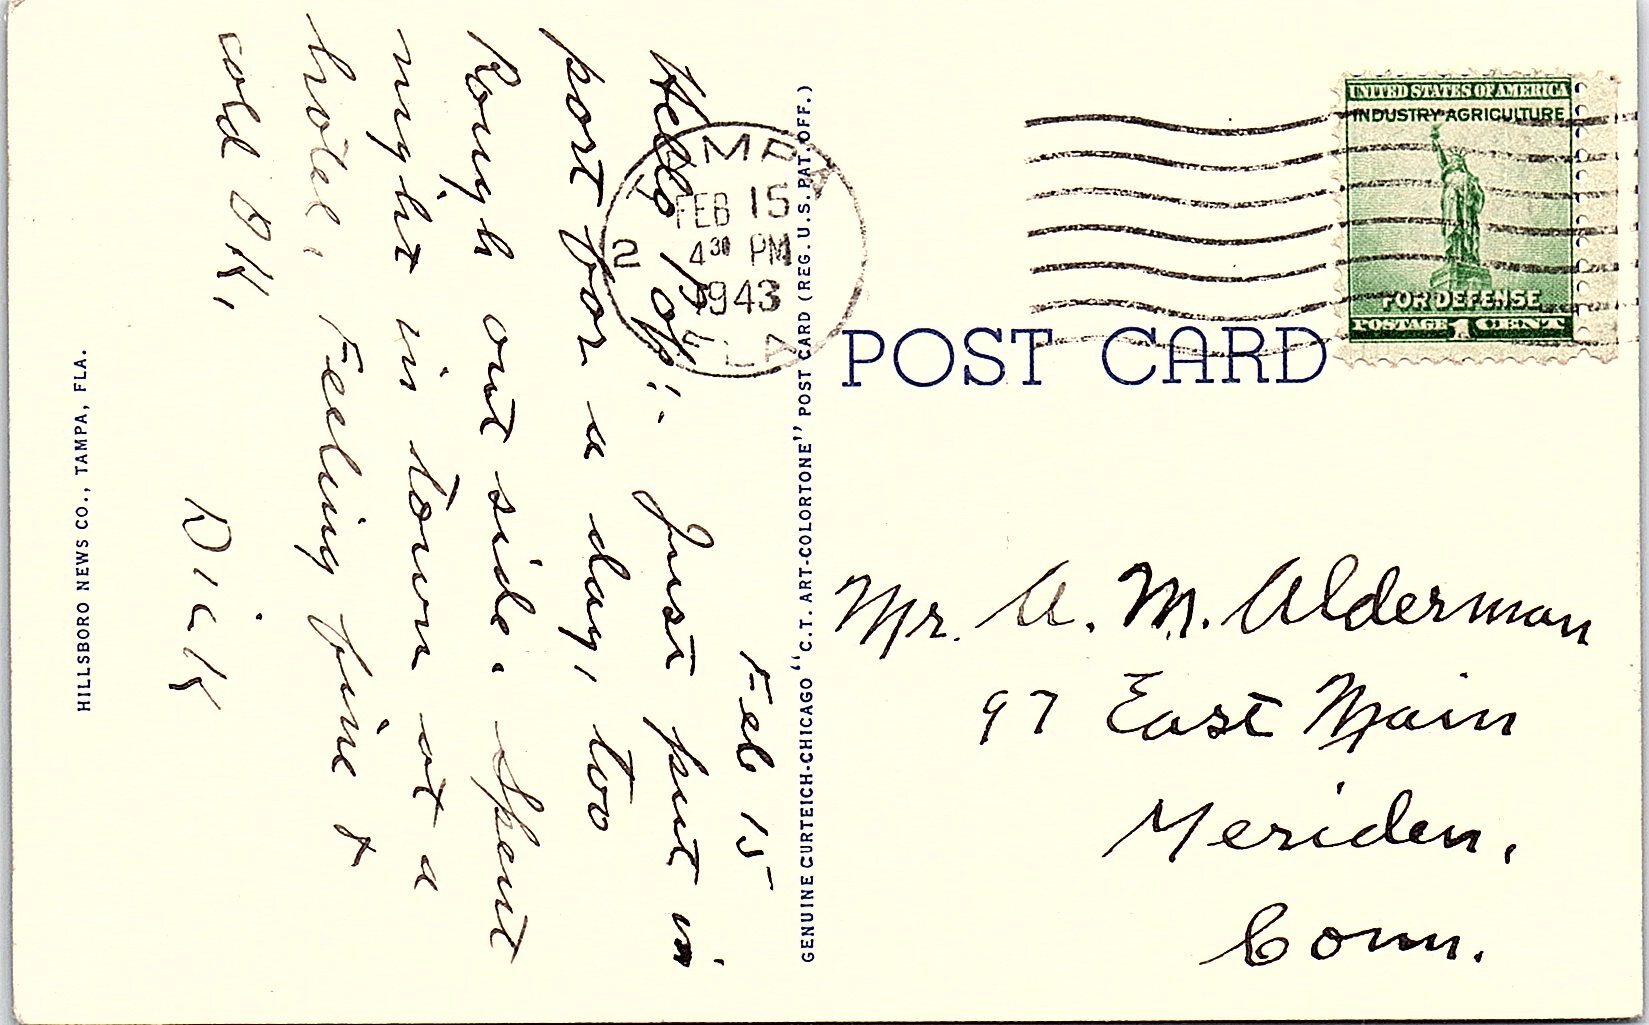 Feb 15
Hello Pop:- Just put in
port for a day, too
Rough out side. Spent
night in town at a
hotel, Feeling fine &
cold OK,
Dick
HILLSBORO NEWS CO., TAMPA, FLA.
GENUINE CURTEICH-CHICAGO "C.T. ART-COLORTONE" POST CARD (REG. U.S. PAT. OFF.)
TAMPA
FEB 15
4 30 PM
2
1943
FLA
UNITED STATES OF AMERICA
INDUSTRY AGRICULTURE
FOR DEFENSE
POSTAGE 1 CENT
POST CARD
Mr. A. M. Alderman
97 East Main
Meriden,
Conn.